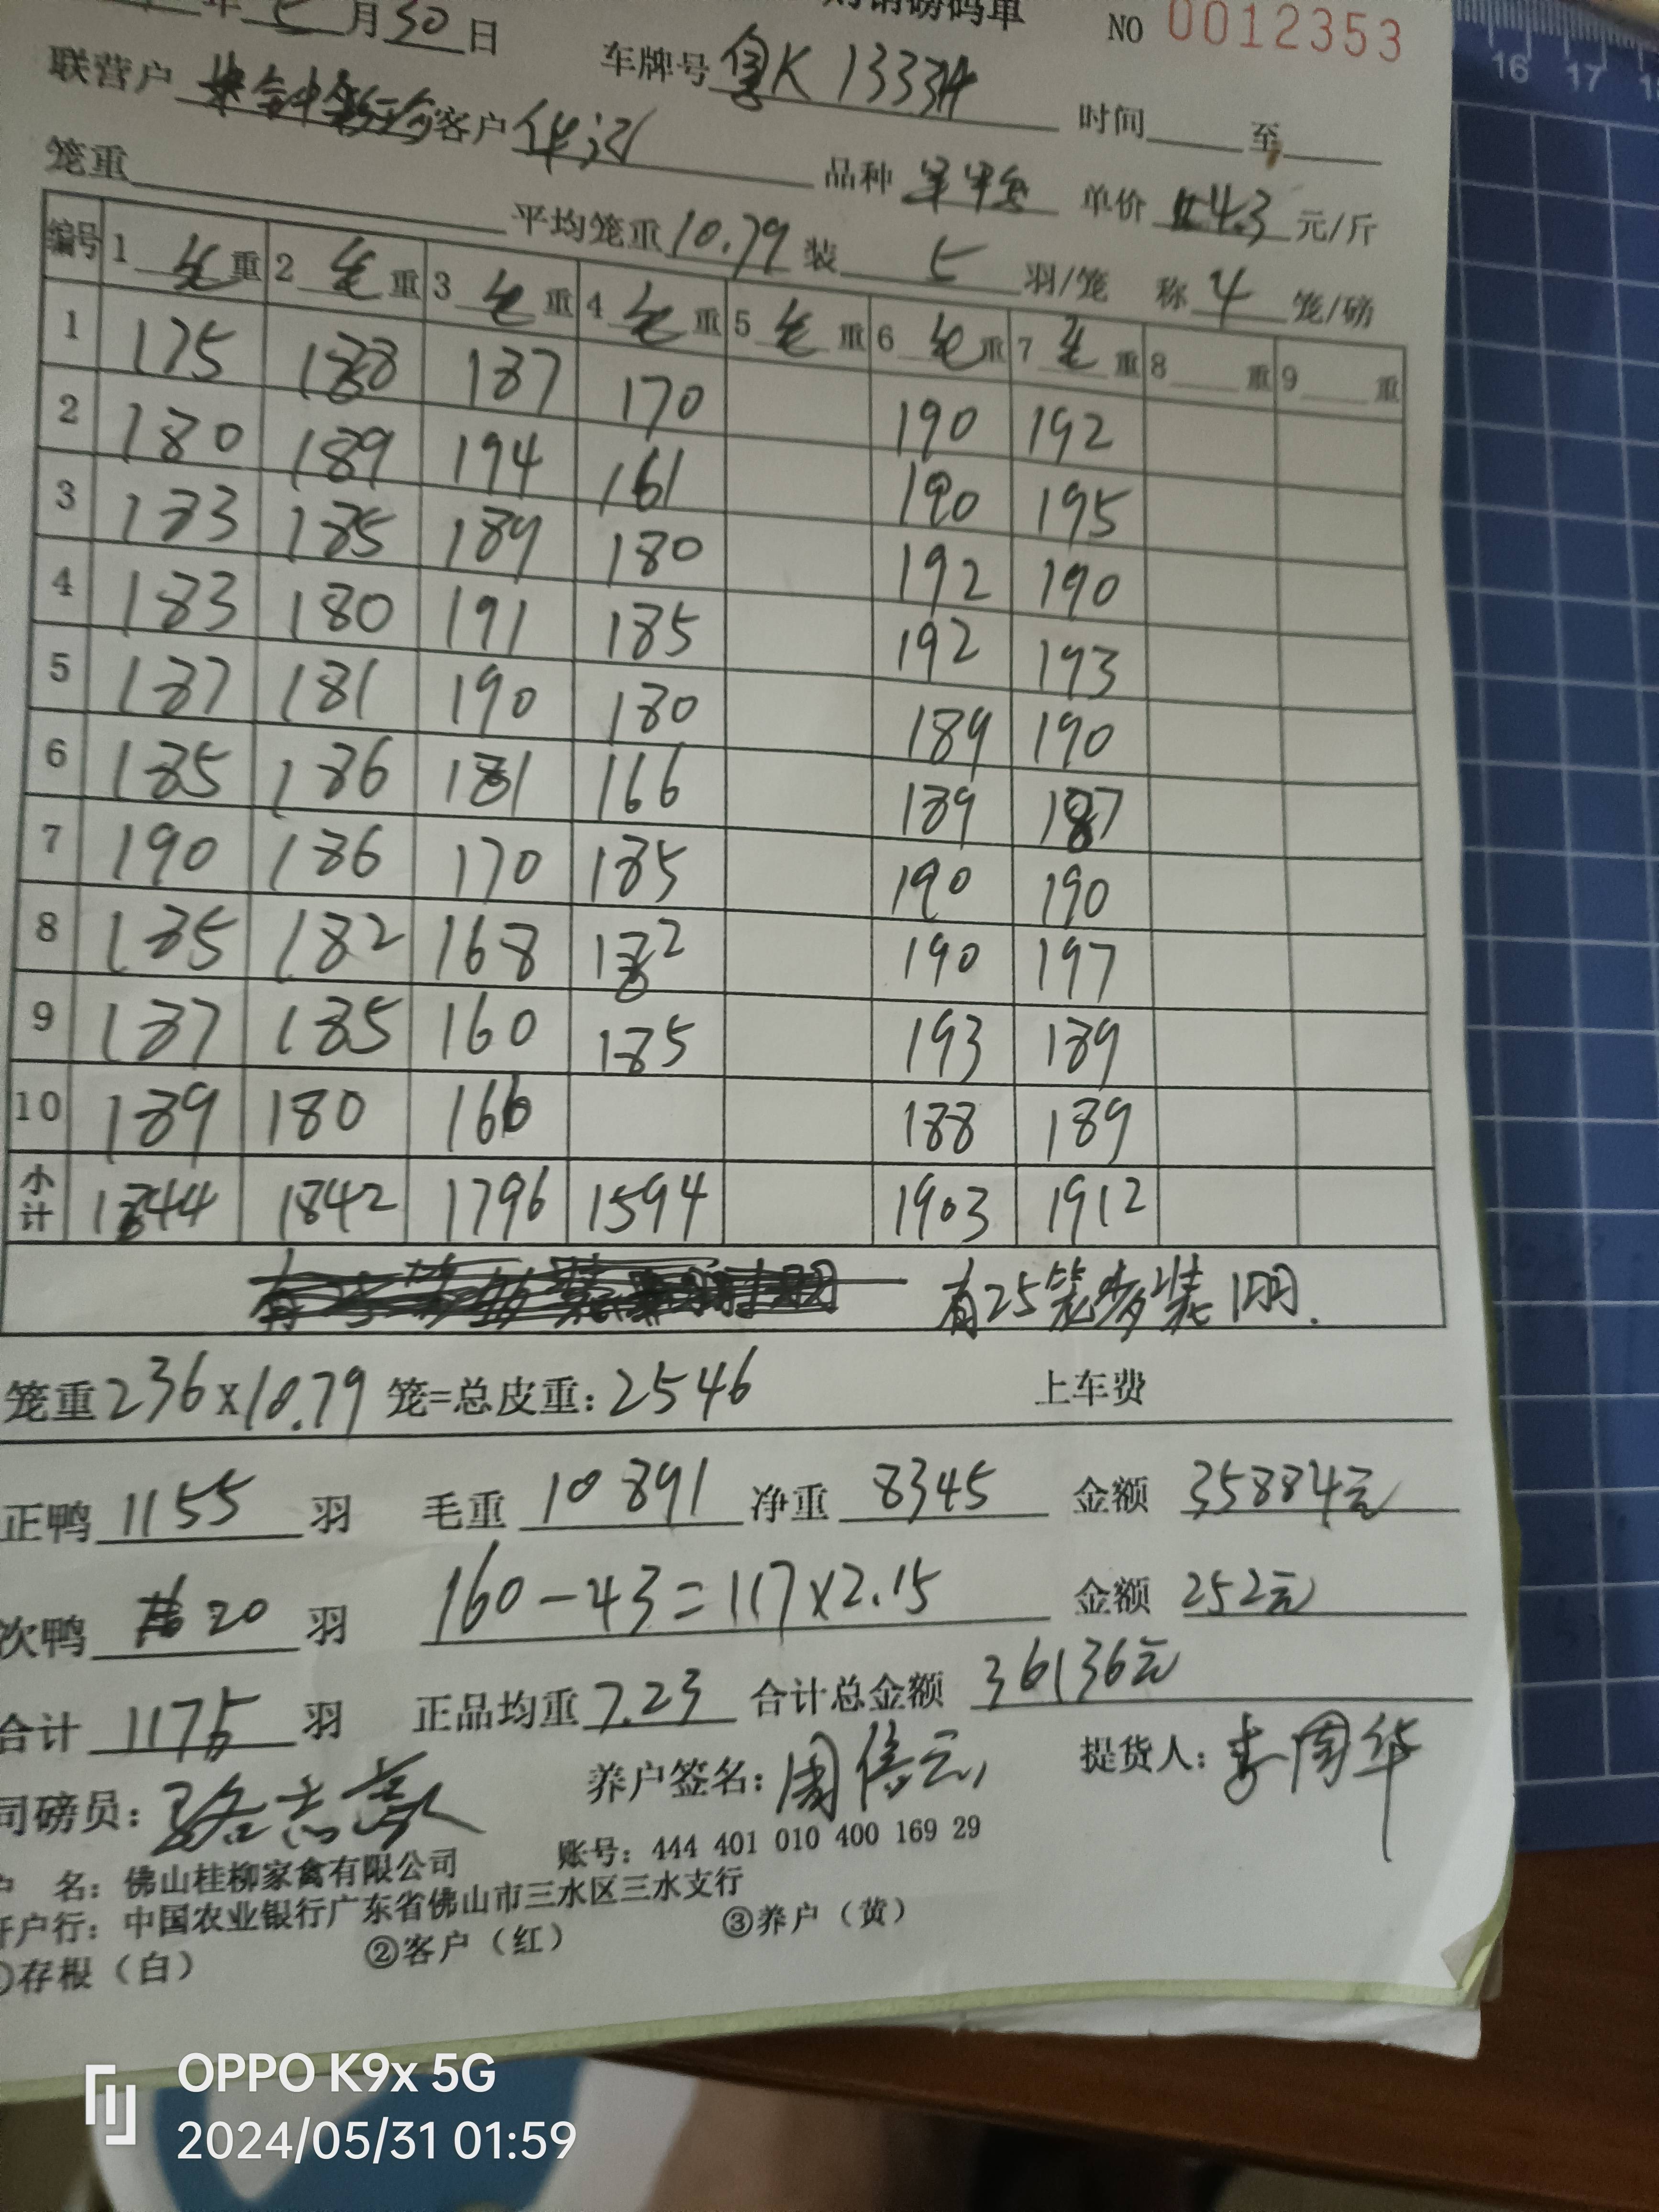 年 5 月 30 日 购销磅码单 NO 0012353
联营户 客户 华记 车牌号 粤K 1333H 时间 至
笼重 平均笼重 10.79 装 5 羽/笼 称 4 笼/磅
品种 单价 4.3 元/斤
编号 1 毛 重 2 毛 重 3 毛 重 4 毛 重 5 毛 重 6 毛 重 7 毛 重 8 重 9 重
1 175 188 187 170 190 192
2 180 189 194 161 190 195
3 183 185 189 180 192 190
4 183 180 191 185 192 193
5 187 181 190 180 189 190
6 185 186 181 166 189 187
7 190 186 170 185 190 190
8 185 182 168 182 190 197
9 187 185 160 185 193 189
10 189 180 166 188 189
小计 1844 1842 1796 1594 1903 1912
有25笼少装1只.
笼重 236×10.79 笼=总皮重: 2546 上车费
正鸭 1155 羽 毛重 10891 净重 8345 金额 35884元
次鸭 20 羽 160-43=117×2.15 金额 252元
合计 1175 羽 正品均重 7.23 合计总金额 36136元
司磅员: 养户签名: 提货人: 李周华
户 名: 佛山桂柳家禽有限公司 账号: 444 401 010 400 169 29
开户行: 中国农业银行广东省佛山市三水区三水支行
①存根（白） ②客户（红） ③养户（黄）
16 17
OPPO K9x 5G
2024/05/31 01:59